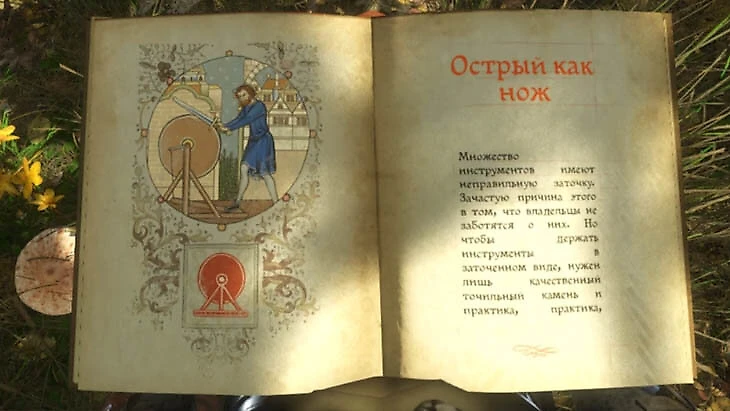 Острый как
нож
Множество
инструментов имеют
неправильную заточку.
Зачастую причина этого
в том, что владельцы не
заботятся о них. Но
чтобы держать
инструменты в
заточенном виде, нужен
лишь качественный
точильный камень и
практика, практика,